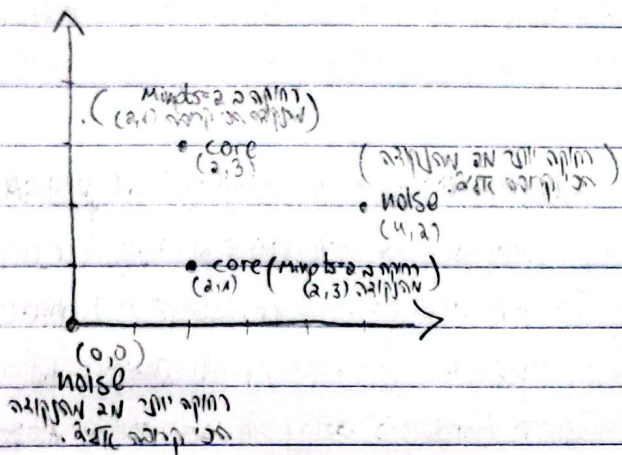 (רחוקה ב 2 MinPts=2
מהנקודה הכי קרובה (2,1)
core
(2,3)
(רחוקה יותר מ2 מהנקודה
הכי קרובה אליה)
noise
(4,2)
core (MinPts=2 רחוקה ב 2
(2,1) מהנקודה (2,3)
(0,0)
noise
רחוקה יותר מ2 מהנקודה
הכי קרובה אליה.